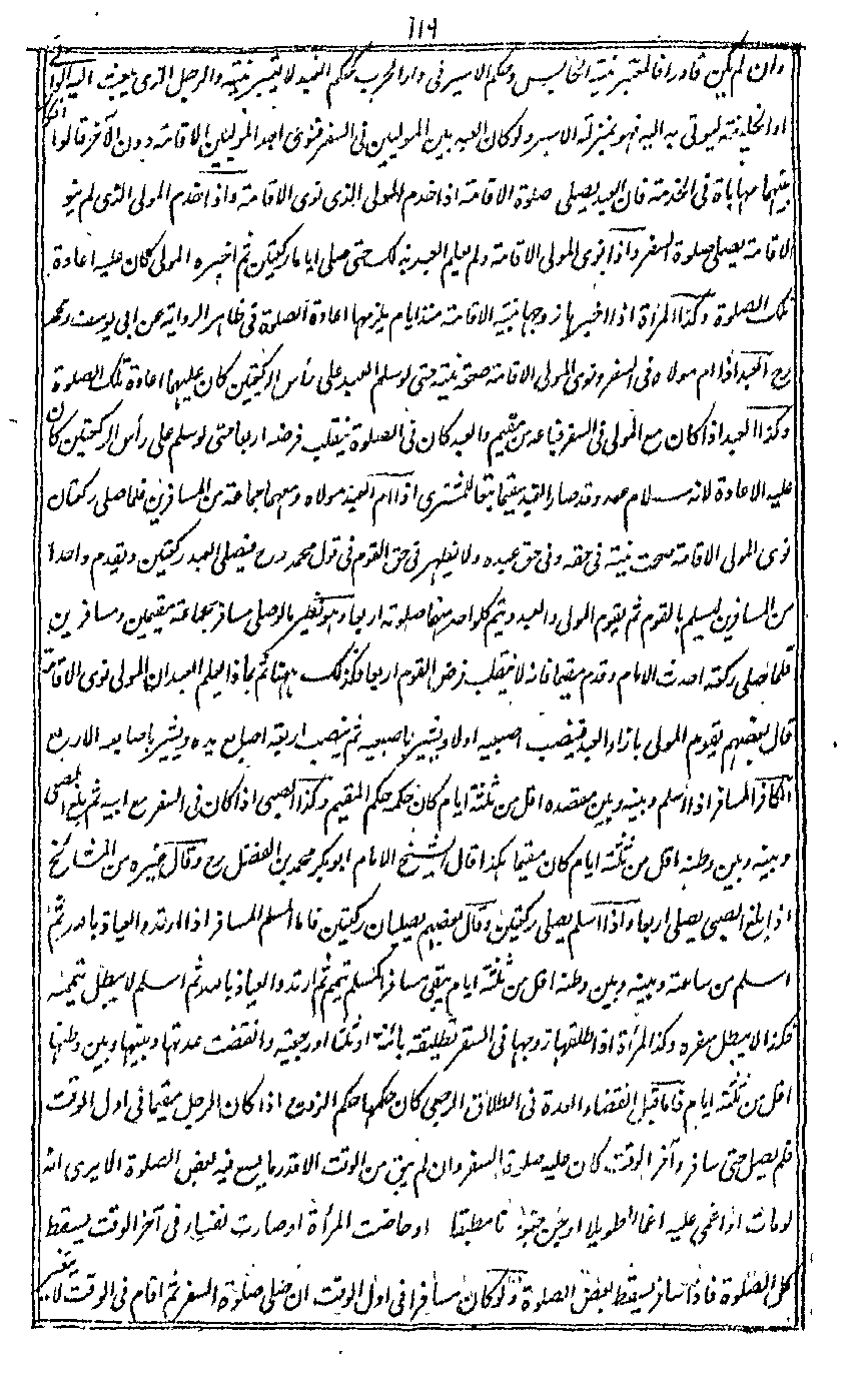 ١١٩
وان لم يكن قادرا فالمعتبر نية الحابس وحكم الاسير فى دار الحرب كحكم العبد لا تعتبر نيته والرجل الذى يبعث اليه الوالى
او الخليفة ليؤتى به اليه فهو بمنزلة الاسير ولو كان العبد بين الموليين فى السفر فنوى احد الموليين الاقامة دون الآخر قالوا ان كان
بينهما مهاياة فى الخدمة فان العبد يصلى صلوة الاقامة اذا خدم المولى الذى نوى الاقامة واذا خدم المولى الذى لم ينو
الاقامة يصلى صلوة السفر واذا نوى المولى الاقامة ولم يعلم العبد بذلك حتى صلى اياما ركعتين ثم اخبره المولى كان عليه اعادة
تلك الصلوة وكذا المرأة اذا اخبرها زوجها بنية الاقامة منذ ايام يلزمها اعادة الصلوة فى ظاهر الرواية عن ابى يوسف ومحمد
رح العبد اذا ام مولاه فى السفر ونوى المولى الاقامة صحت نيته حتى لو سلم العبد على رأس الركعتين كان عليهما اعادة تلك الصلوة
وكذا العبد اذا كان مع المولى فى السفر فباعه من مقيم والعبد كان فى الصلوة ينقلب فرضه اربعا حتى لو سلم على رأس الركعتين كان
عليه الاعادة لانه سلام عمد وقد صار العبد مقيما تبعا للمشترى اذا ام العبد مولاه ومعهما جماعة من المسافرين فلما صلى ركعتان
نوى المولى الاقامة صحت نيته فى حقه وفى حق عبده ولا يظهر فى حق القوم فى قول محمد رح فيصلى العبد ركعتين ويقدم واحدا
من المسافرين ليسلم بالقوم ثم يقوم المولى والعبد ويتم كل واحد منهما صلوته اربعا وهو نظير ما لو صلى مسافر بجماعة مقيمين ومسافرين
فلما صلى ركعة احدث الامام وقدم مقيما فانه لا ينقلب فرض القوم اربعا وكذلك ههنا ثم بماذا يعلم العبد ان المولى نوى الاقامة
قال بعضهم يقوم المولى بازاء العبد فينصب اصبعيه اولا ويشير باصبعيه ثم ينصب اربعة اصابع يده ويشير باصابعه الاربع
الكافر المسافر اذا اسلم وبينه وبين مقصده اقل من ثلثة ايام كان حكمه حكم المقيم وكذا الصبى اذا كان فى السفر مع ابيه ثم بلغ الصبى
وبينه وبين وطنه اقل من ثلثة ايام كان مقيما هكذا قال الشيخ الامام ابو بكر محمد بن الفضل رح وقال غيره من المشائخ
اذا بلغ الصبى يصلى اربعا واذا اسلم يصلى ركعتين وقال بعضهم يصليان ركعتين فاما المسلم المسافر اذا ارتد والعياذ بالله ثم
اسلم من ساعته وبينه وبين وطنه اقل من ثلثة ايام يبقى مسافرا كمسلم تيمم ثم ارتد والعياذ بالله ثم اسلم لا يبطل تيممه
فكذا لا يبطل سفره وكذا المرأة اذا طلقها زوجها فى السفر تطليقة بائنة او ثلثا او رجعية وانقضت عدتها وبينها وبين وطنها
اقل من ثلثة ايام فاما قبل انقضاء العدة فى الطلاق الرجعى كان حكمها حكم الزوج اذا كان الرجل مقيما فى اول الوقت
فلم يصل حتى سافر فى آخر الوقت كان عليه صلوة السفر وان لم يبق من الوقت الا قدر ما يسع فيه لبعض الصلوة الا يرى انه
لو مات او اغمى عليه اغماء طويلا او جن جنونا مطبقا او حاضت المرأة او صارت نفساء فى آخر الوقت يسقط
كل الصلوة فاذا سافر يسقط بعض الصلوة ولو كان مسافرا فى اول الوقت ان صلى صلوة السفر ثم اقام فى الوقت لا يتغير